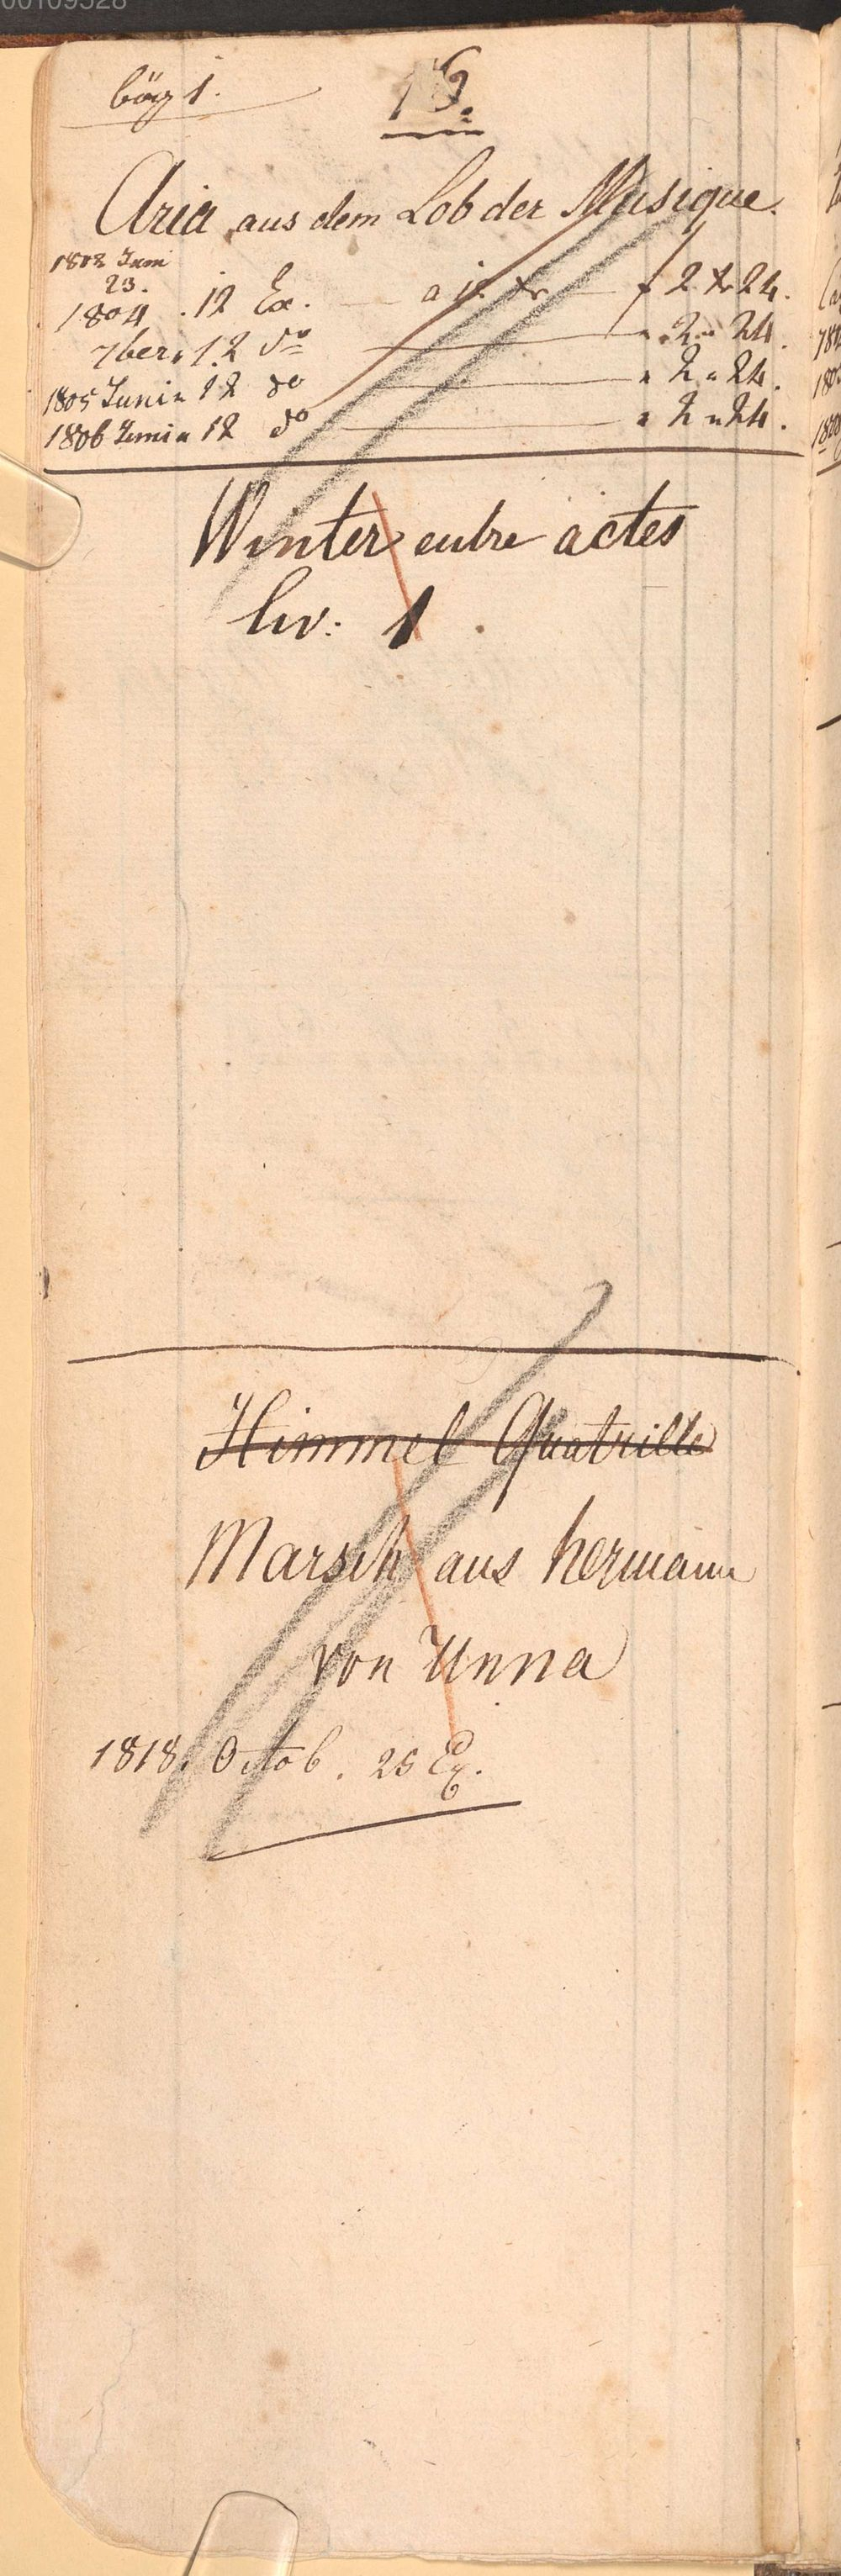 bög 1.
16.
Aria aus dem Lob der Musique.
1802 Juni
23. 12 Ex. — a 12 Xr — f 2 Xr 24.
1804
7ber " 12 do — " 2 " 24.
1805 Juni " 12 do — " 2 " 24.
1806 Juni " 12 do — " 2 " 24.
Winter entre actes
liv: 1.
Himmel Quatrille
Marsch aus hermann
von Unna
1818. Octob. 25 Ex.